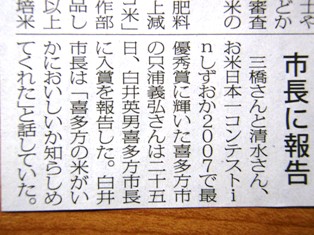 士や
どか
審査
米の
肥料
上減
コ米」
作部
品し
以上
培米
市長に報告
三橋さんと清水さん、
お米日本一コンテストi
nしずおか2007で最
優秀賞に輝いた喜多方市
の只浦義弘さんは二十五
日、白井英男喜多方市長
に入賞を報告した。白井
市長は「喜多方の米がい
かにおいしいか知らしめ
てくれた」と話していた。